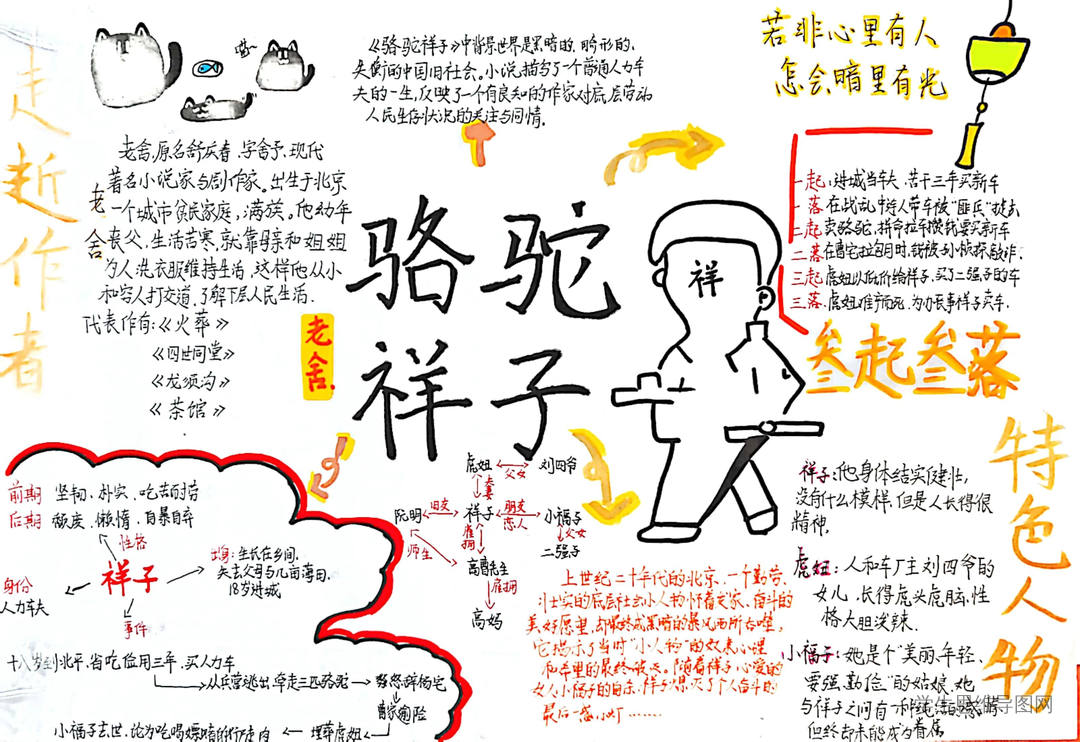 走近作者
老舍,原名舒庆春,字舍予,现代
著名小说家与剧作家。出生于北京
一个城市贫民家庭,满族。他幼年
丧父,生活苦寒,就靠母亲和姐姐
为人洗衣服维持生活,这样他从小
和穷人打交道,了解下层人民生活.
老舍
代表作有:《火葬》
《四世同堂》
《龙须沟》
《茶馆》
《骆驼祥子》中背景世界是黑暗的、畸形的、
失衡的中国旧社会。小说描写了一个普通人力车
夫的一生,反映了一个有良知的作家对底层劳动
人民生存状况的关注与同情.
若非心里有人
怎会暗里有光
一起:进城当车夫,苦干三年买新车
一落:在战乱中
二起:卖骆驼,拼命拉车
买新车
二落:在曹宅拉包月时,
三起:虎妞以低价给祥子,买了二强子的车
三落:虎妞难产而死,为办丧事祥子卖车.
叁起叁落
骆驼
祥子
老舍.
祥
前期 坚韧、朴实、吃苦耐劳
后期 颓废、懒惰、自暴自弃
性格
祥子
出身:生长在乡间,
失去父母与几亩薄田,
18岁进城
身份
人力车夫
事件
十八岁到北平,省吃俭用三年,买人力车
从兵营逃出,牵走三匹骆驼
小福子去世,沦为吃喝嫖赌的行走肉
虎妞
父女
刘四爷
夫妻
阮明
旧友
祥子
朋友
恋人
小福子
师生
雇佣
父女
二强子
高妈
雇佣
上世纪二十年代的北京,一个勤劳、
壮实的底层社会小人物怀着发家、奋斗的
美好愿望,却最终成黑暗的暴风雨所吞噬,
它揭示了当时“小人物”的奴隶心理
和希望的最终破灭。随着祥子心爱的
女人小福子的自杀,祥子
灭了个人奋斗的
最后一
……
特色人物
祥子:他身体结实健壮,
没有什么模样,但是人长得很
精神.
虎妞:人和车厂主刘四爷的
女儿,长得虎头虎脑,性
格大胆泼辣.
小福子:她是个“美丽、年轻、
要强、勤俭”的姑娘,她
与祥子之间有一种
但终去未能成为眷属
学生思维导图网